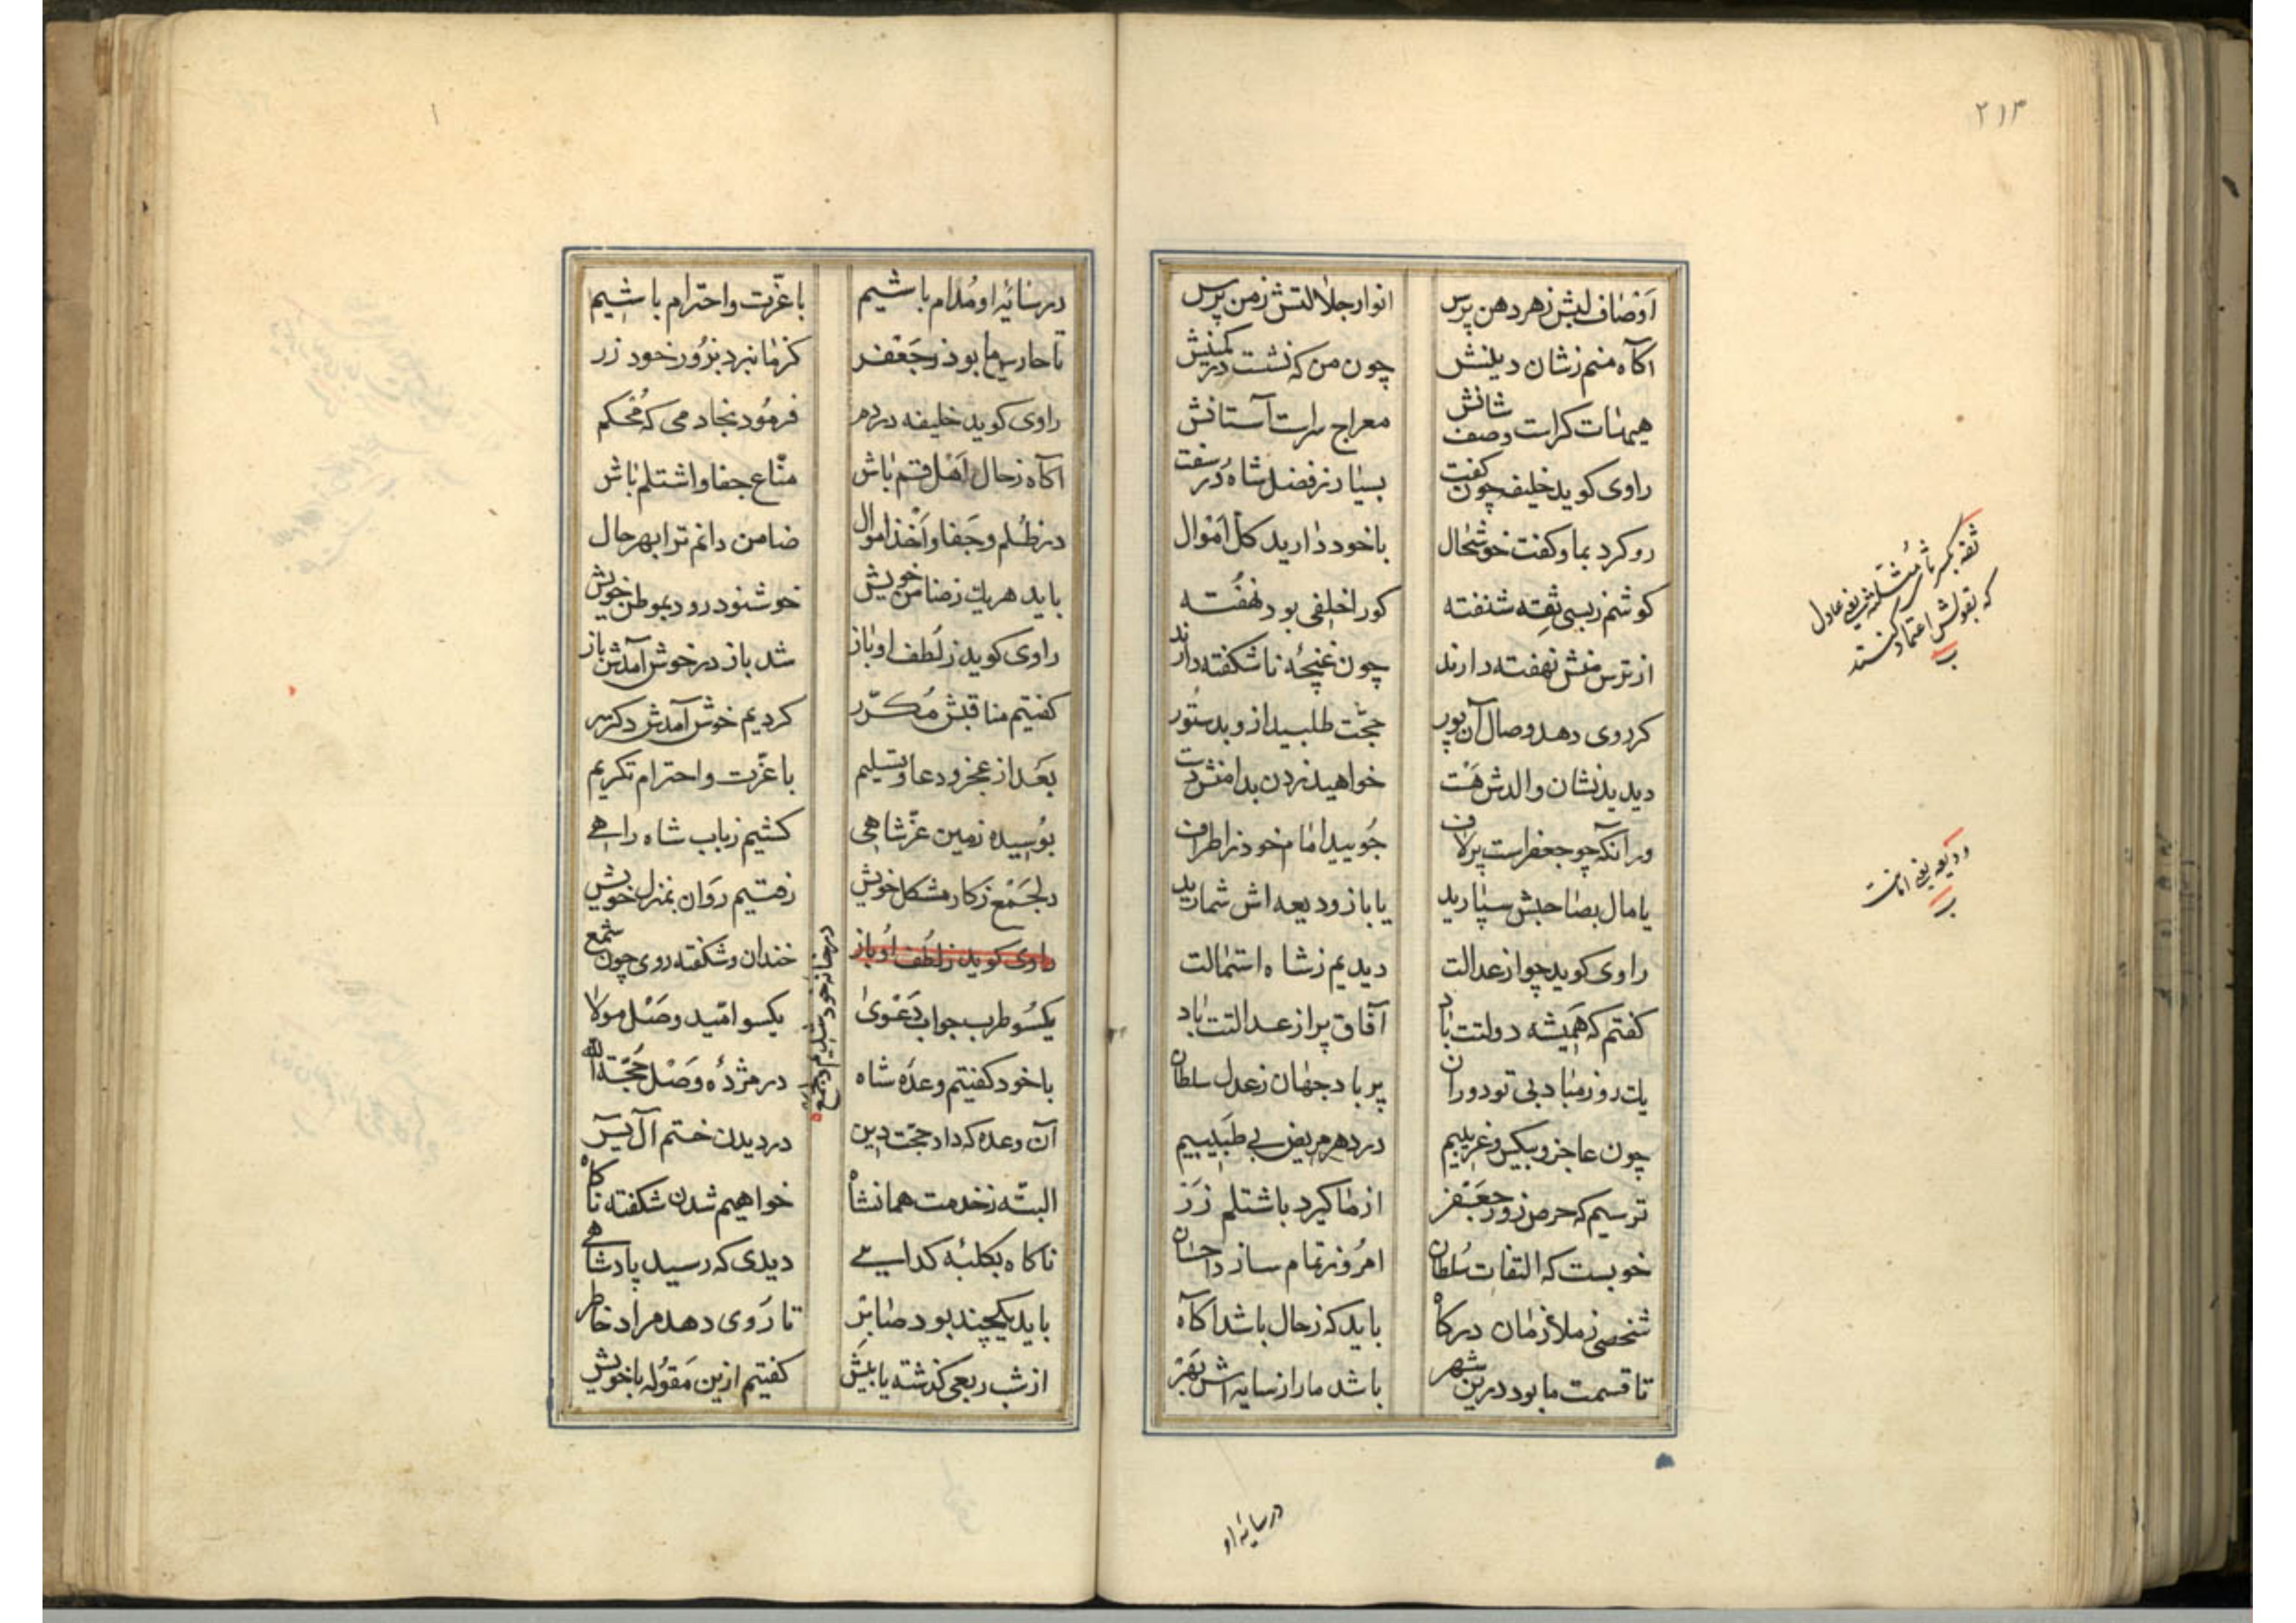 ۲۱۳
اوصاف لبش ز هر دهن پرس انوار جلالتش ز من پرس
اکاه منم ز شان دینش چون من که نشست در کمینش
هیهات کراست وصف شانش معراج سراست آستانش
راوی کوید خلیفه چون کفت بسیار ز فضل شاه در سفت
رو کرد بما و کفت خوشحال با خود دارید کل اموال
کوشم ز بسی ثقه شنفته کورا خلفی بود نهفته
از ترس منش نهفته دارند چون غنچهٔ ناشکفته دارند
کر روی دهد وصال آن پور حجت طلبید ازو بدستور
دیدید نشان والدش هست خواهید زدن بدامنش دست
ور آنکه چو جعفر است پر لاف جویید امام خود ز اطراف
یا مال بصاحبش سپارید یا باز ودیعه اش شمارید
راوی کوید چو از عدالت دیدیم ز شاه استمالت
کفتم که همیشه دولتت باد آفاق پر از عدالتت باد
یک روز مباد بی تو دوران پر باد جهان ز عدل سلطان
چون عاجز و بیکس و غریبیم در دهر مریض بی طبیبیم
ترسیم که حرص زور جعفر از ما کیرد باشتلم زر
خوبست که التفات سلطان امروز تمام سازد احسان
شخصی ز ملازمان درکاه باید که ز حال باشد اکاه
تا قسمت ما بود درین شهر باشد ما را ز سایه اش بهر
ثقه بکسر ثاء مثلثه یعنی عادل
که بقولش اعتماد کنند
ب
ودیعه یعنی امانت
ب
در سایهٔ او
در سایهٔ او مدام باشیم با عزت و احترام باشیم
تا حارس ما بود ز جعفر کز ما نبرد بزور خود زر
راوی کوید خلیفه در دم فرمود بخادمی که محکم
اکاه ز حال اهل قم باش مناع جفا و اشتلم باش
در ظلم و جفا و اخذ اموال ضامن دانم ترا بهر حال
باید هر یک ز ضامن خویش خوشنود رود بموطن خویش
راوی کوید ز لطف او باز شد باز در خوش آمدش باز
کفتیم مناقبش مکرر کردیم خوش آمدش دکر سر
بعد از عجز و دعا و تسلیم با عزت و احترام تکریم
بوسیده زمین عز شاهی کشتیم ز باب شاه راهی
دلجمع ز کار مشکل خویش رفتیم روان بمنزل خویش
راوی کوید ز لطف او باز خندان و شکفته روی چون شمع
در خانه خود شدیم دلجمع
یکسو طرب جواب دعوی یکسو امید وصل مولا
با خود کفتیم وعده شاه در مژدهٔ وصل حجة الله
آن وعده که داد حجت دین در دیدن ختم آل یس
البته ز خدمت همانشاه خواهیم شدن شکفته ناکاه
ناکاه بکلبهٔ کدایی دیدی که رسید پادشاهی
باید یکچند بود صابر تا روی دهد مراد خاطر
از شب ربعی کذشته یا بیش کفتیم ازین مقوله با خویش